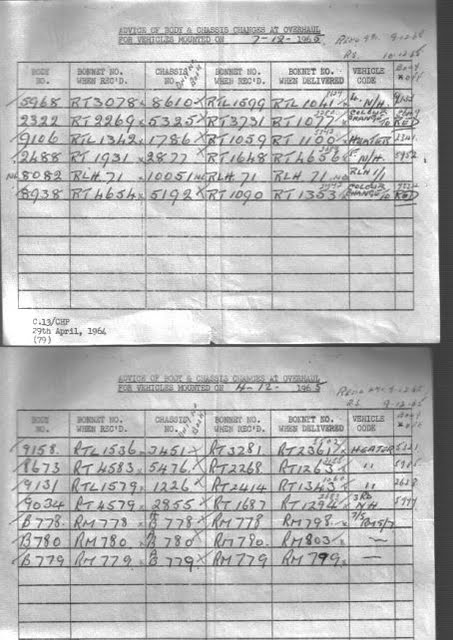 ADVICE OF BODY & CHASSIS CHANGES AT OVERHAUL
FOR VEHICLES MOUNTED ON 7-12-1965
9-12-65
10-12-65
BODY NO. BONNET NO. WHEN REC'D. CHASSIS NO. BONNET NO. BONNET NO. WHEN DELIVERED VEHICLE CODE
5968 RT3078 8610 RTL1599 RTL1041 N/H
2322 RT2269 5325 RT3731 RT1077 COLOUR CHANGE TO RED
9106 RTL1342 1786 RT1059 RT1100 HEATER
2488 RT1931 2877 RT1648 RT4656 N/H
8082 RLH.71 10051 RLH.71 RLH.71 RLH 1/1
8938 RT4654 5192 RT1090 RT1353 COLOUR CHANGE TO RED
C.13/CHP
29th April, 1964
(79)
ADVICE OF BODY & CHASSIS CHANGES AT OVERHAUL
FOR VEHICLES MOUNTED ON 4-12-1965
9-12-65
BODY NO. BONNET NO. WHEN REC'D. CHASSIS NO. BONNET NO. BONNET NO. WHEN DELIVERED VEHICLE CODE
9158 RTL1536 3451 RT3281 RT2361 HEATER
8673 RT4583 5476 RT2268 RT1263 "
9131 RTL1579 1226 RT2414 RT1343 "
9034 RT4579 2855 RT1687 RT1294 3RD N/H
B778 RM778 B778 RM778 RM798
B780 RM780 B780 RM780 RM803 —
B779 RM779 B779 RM779 RM799 —